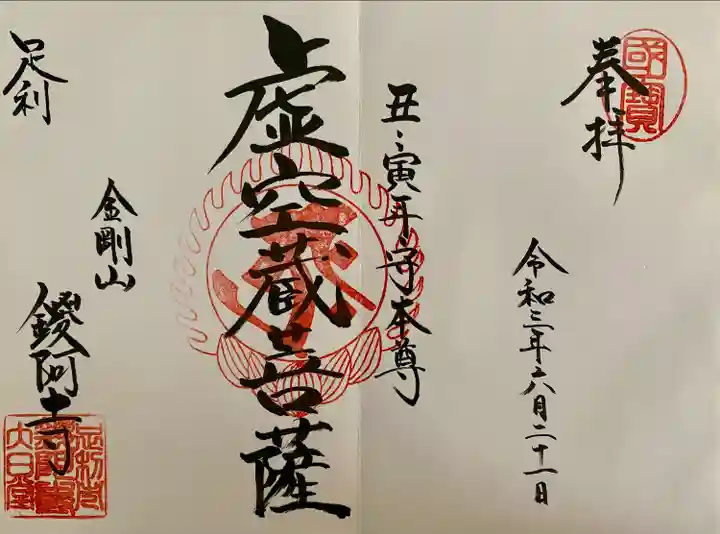 國寶
奉拝
令和三年六月二十一日
丑、寅年守本尊
虚空蔵菩薩
足利
金剛山
鑁阿寺